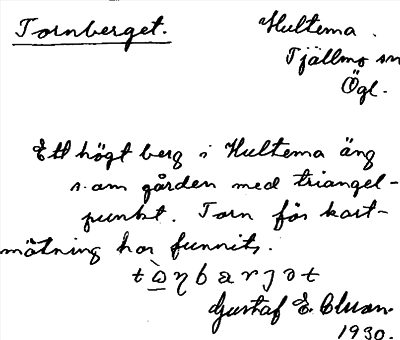 Tornberget.
Hultema.
Tjällmo sn
Ögl.
Ett högt berg i Hultema äng
s. om gården med triangel-
punkt. Torn för kart-
mätning har funnits.
Gustaf E.
1930.